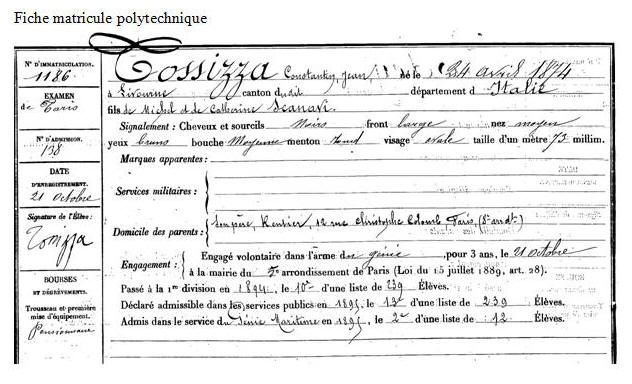 Fiche matricule polytechnique
N° D'IMMATRICULATION.
1186
EXAMEN
de Paris
N° D'ADMISSION.
138
DATE
D'ENREGISTREMENT.
21 octobre
Signature de l'Élève:
Tossizza
BOURSES
ET DÉGRÈVEMENTS.
Trousseau et première
mise d'équipement.
Pensionnaire
Tossizza Constantin, Jean né le 24 avril 1874
à Livourne canton dudit département d Italie
fils de Michel et de Catherine
Signalement: Cheveux et sourcils Noirs front large nez moyen
yeux bruns bouche Moyenne menton rond visage ovale taille d'un mètre 73 millim.
Marques apparentes:
Services militaires:
Domicile des parents: Son père, Rentier, 12 rue Christophe Colomb Paris (8e arrdt)
Engagement: Engagé volontaire dans l'arme du génie, pour 3 ans, le 21 octobre
à la mairie du 7e arrondissement de Paris (Loi du 15 juillet 1889, art. 28).
Passé à la 1re division en 1894, le 10e d'une liste de 239 Élèves.
Déclaré admissible dans les services publics en 1895, le 13e d'une liste de 239 Élèves.
Admis dans le service du Génie Maritime en 1895, le 2e d'une liste de 12 Élèves.